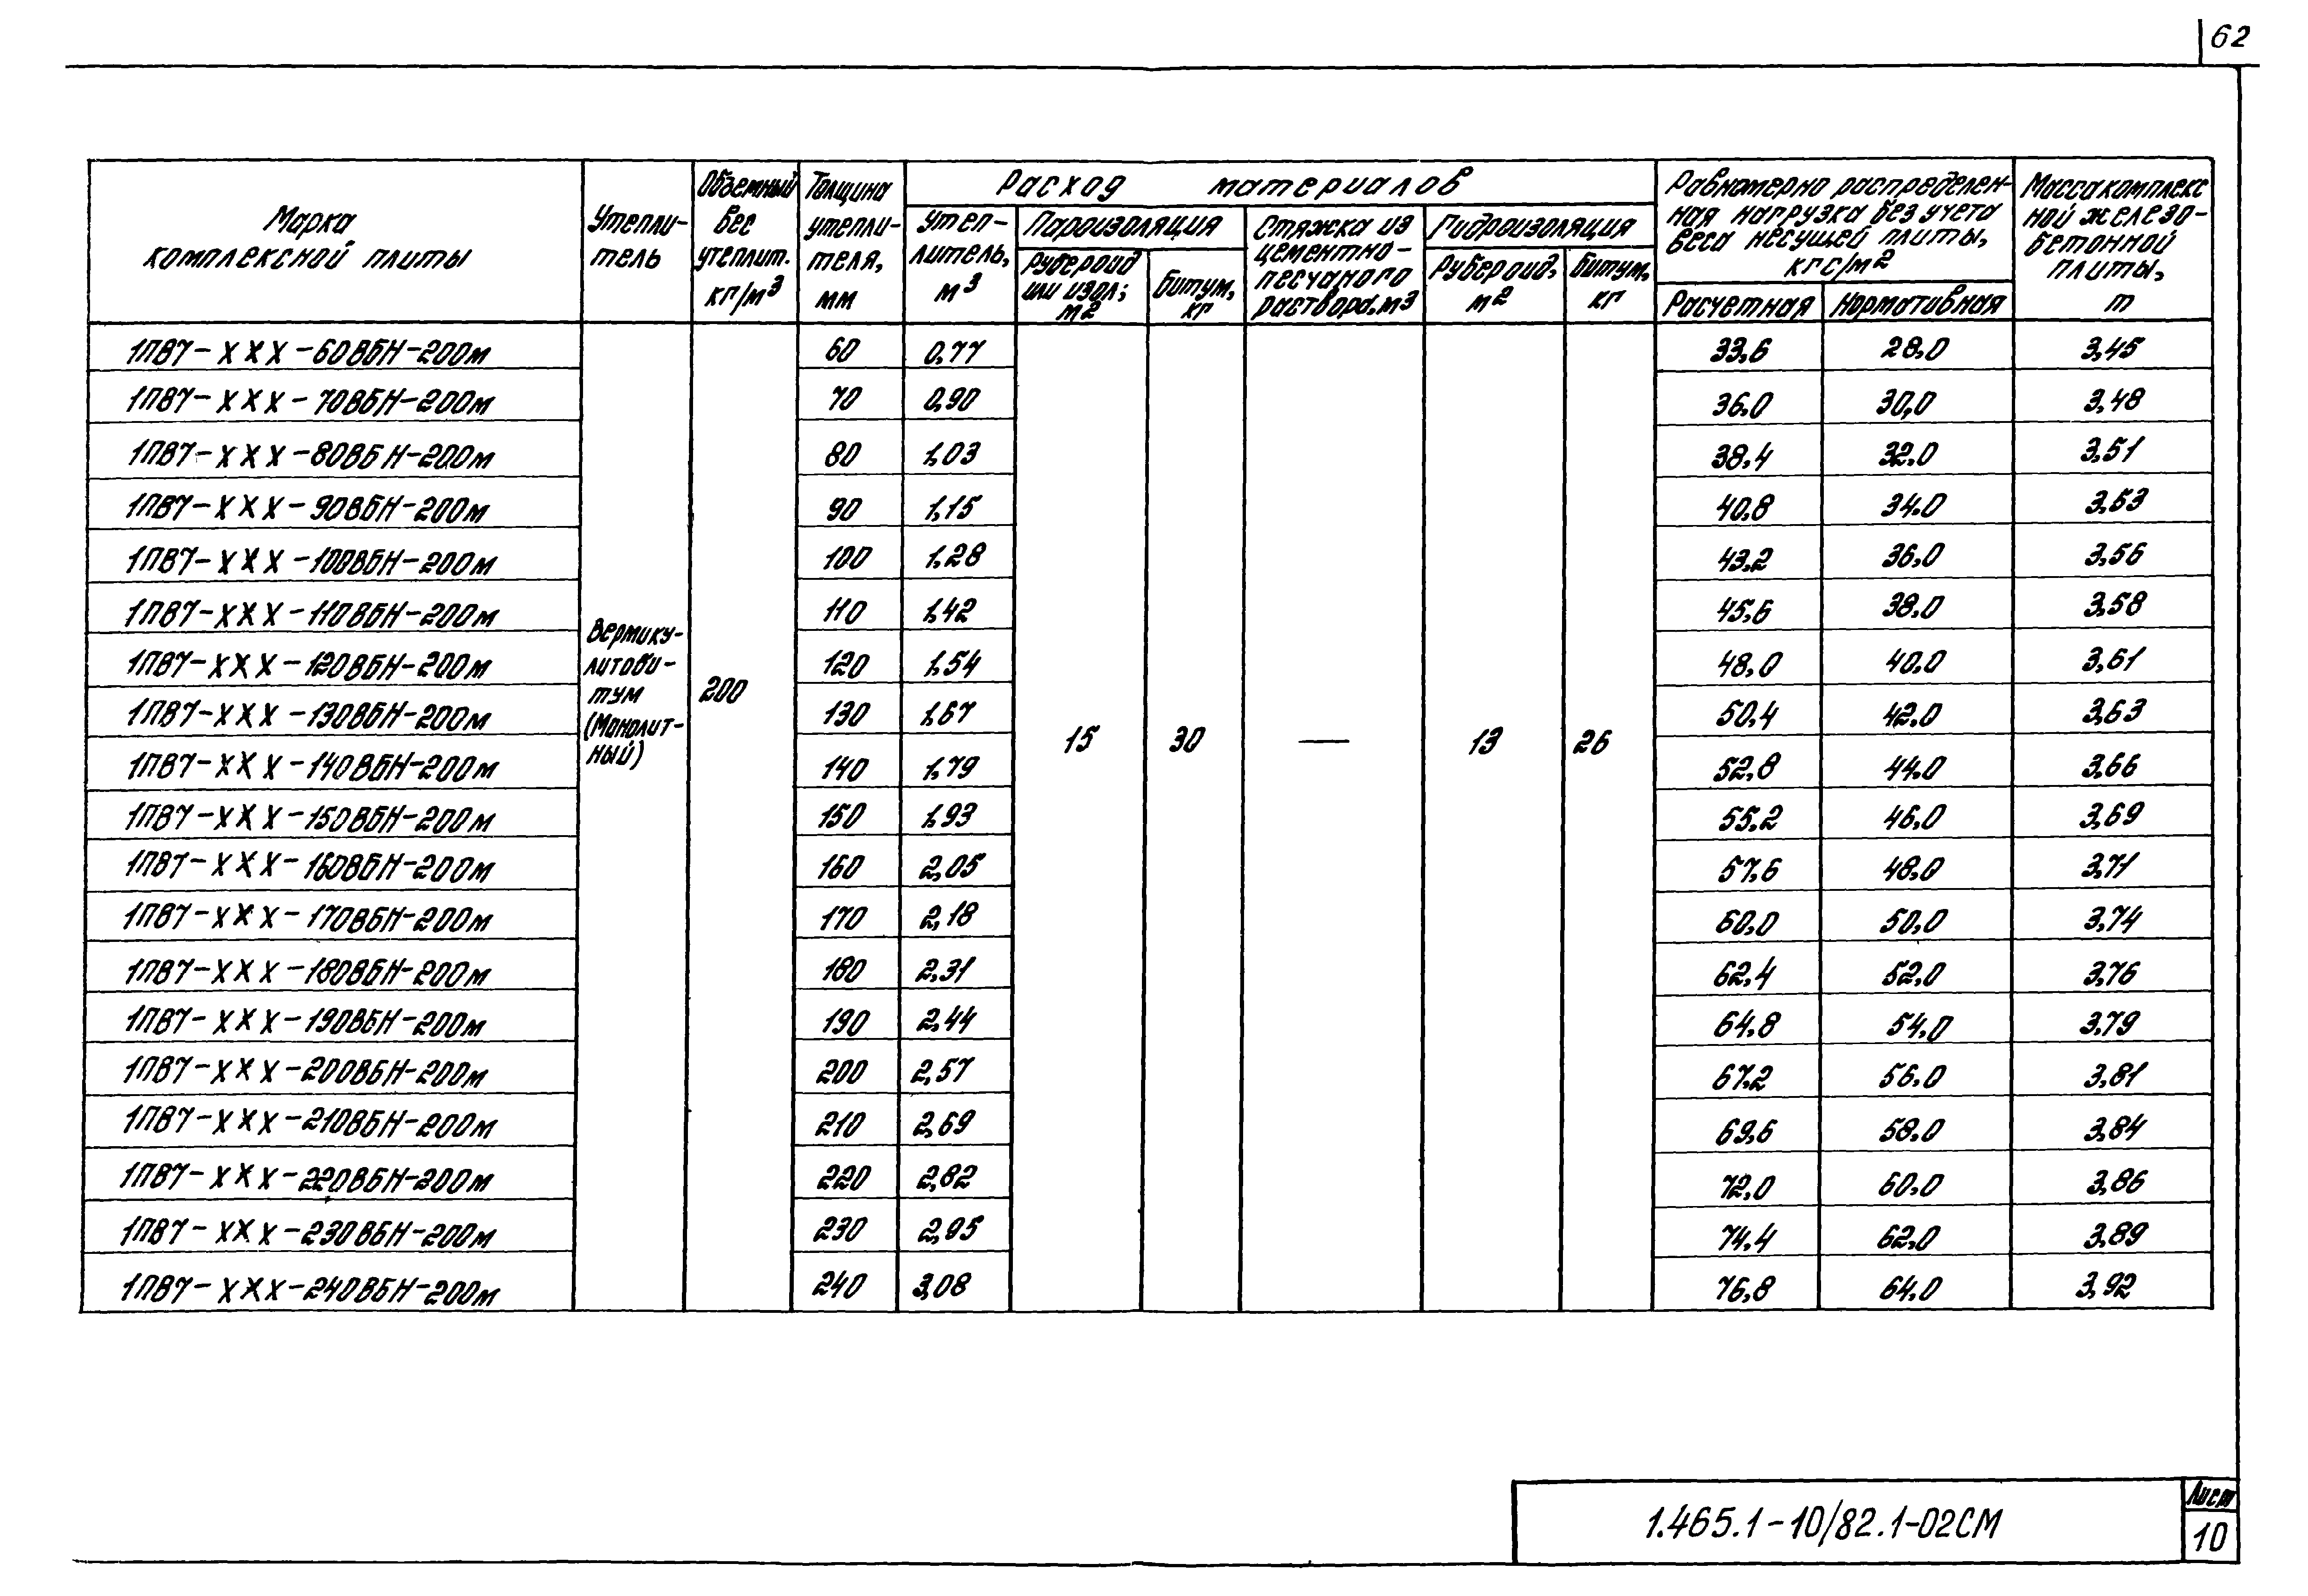 62
Марка
комплексной плиты
Утепли-
тель
Объемный
вес
утеплит.
кг/м3
Толщина
утепли-
теля,
мм
Расход материалов
Утеп-
литель,
м3
Пароизоляция
Рубероид
или изол;
м2
Битум,
кг
Стяжка из
цементно-
песчаного
раствора, м3
Гидроизоляция
Рубероид,
м2
Битум,
кг
Равномерно распределен-
ная нагрузка без учета
веса несущей плиты,
кгс/м2
Расчетная
Нормативная
Масса комплекс
ной железо-
бетонной
плиты,
т
1ПВ7-ХХХ-60ВБН-200м 60 0,77 33,6 28,0 3,45
1ПВ7-ХХХ-70ВБН-200м 70 0,90 36,0 30,0 3,48
1ПВ7-ХХХ-80ВБН-200м 80 1,03 38,4 32,0 3,51
1ПВ7-ХХХ-90ВБН-200м 90 1,15 40,8 34,0 3,53
1ПВ7-ХХХ-100ВБН-200м 100 1,28 43,2 36,0 3,56
1ПВ7-ХХХ-110ВБН-200м 110 1,42 45,6 38,0 3,58
1ПВ7-ХХХ-120ВБН-200м 120 1,54 48,0 40,0 3,61
1ПВ7-ХХХ-130ВБН-200м 130 1,67 50,4 42,0 3,63
1ПВ7-ХХХ-140ВБН-200м 140 1,79 52,8 44,0 3,66
1ПВ7-ХХХ-150ВБН-200м 150 1,93 55,2 46,0 3,69
1ПВ7-ХХХ-160ВБН-200м 160 2,05 57,6 48,0 3,71
1ПВ7-ХХХ-170ВБН-200м 170 2,18 60,0 50,0 3,74
1ПВ7-ХХХ-180ВБН-200м 180 2,31 62,4 52,0 3,76
1ПВ7-ХХХ-190ВБН-200м 190 2,44 64,8 54,0 3,79
1ПВ7-ХХХ-200ВБН-200м 200 2,57 67,2 56,0 3,81
1ПВ7-ХХХ-210ВБН-200м 210 2,69 69,6 58,0 3,84
1ПВ7-ХХХ-220ВБН-200м 220 2,82 72,0 60,0 3,86
1ПВ7-ХХХ-230ВБН-200м 230 2,95 74,4 62,0 3,89
1ПВ7-ХХХ-240ВБН-200м 240 3,08 76,8 64,0 3,92
Вермику-
литоби-
тум
(Монолит-
ный)
200
15 30 — 13 26
1.465.1-10/82.1-02СМ
Лист
10